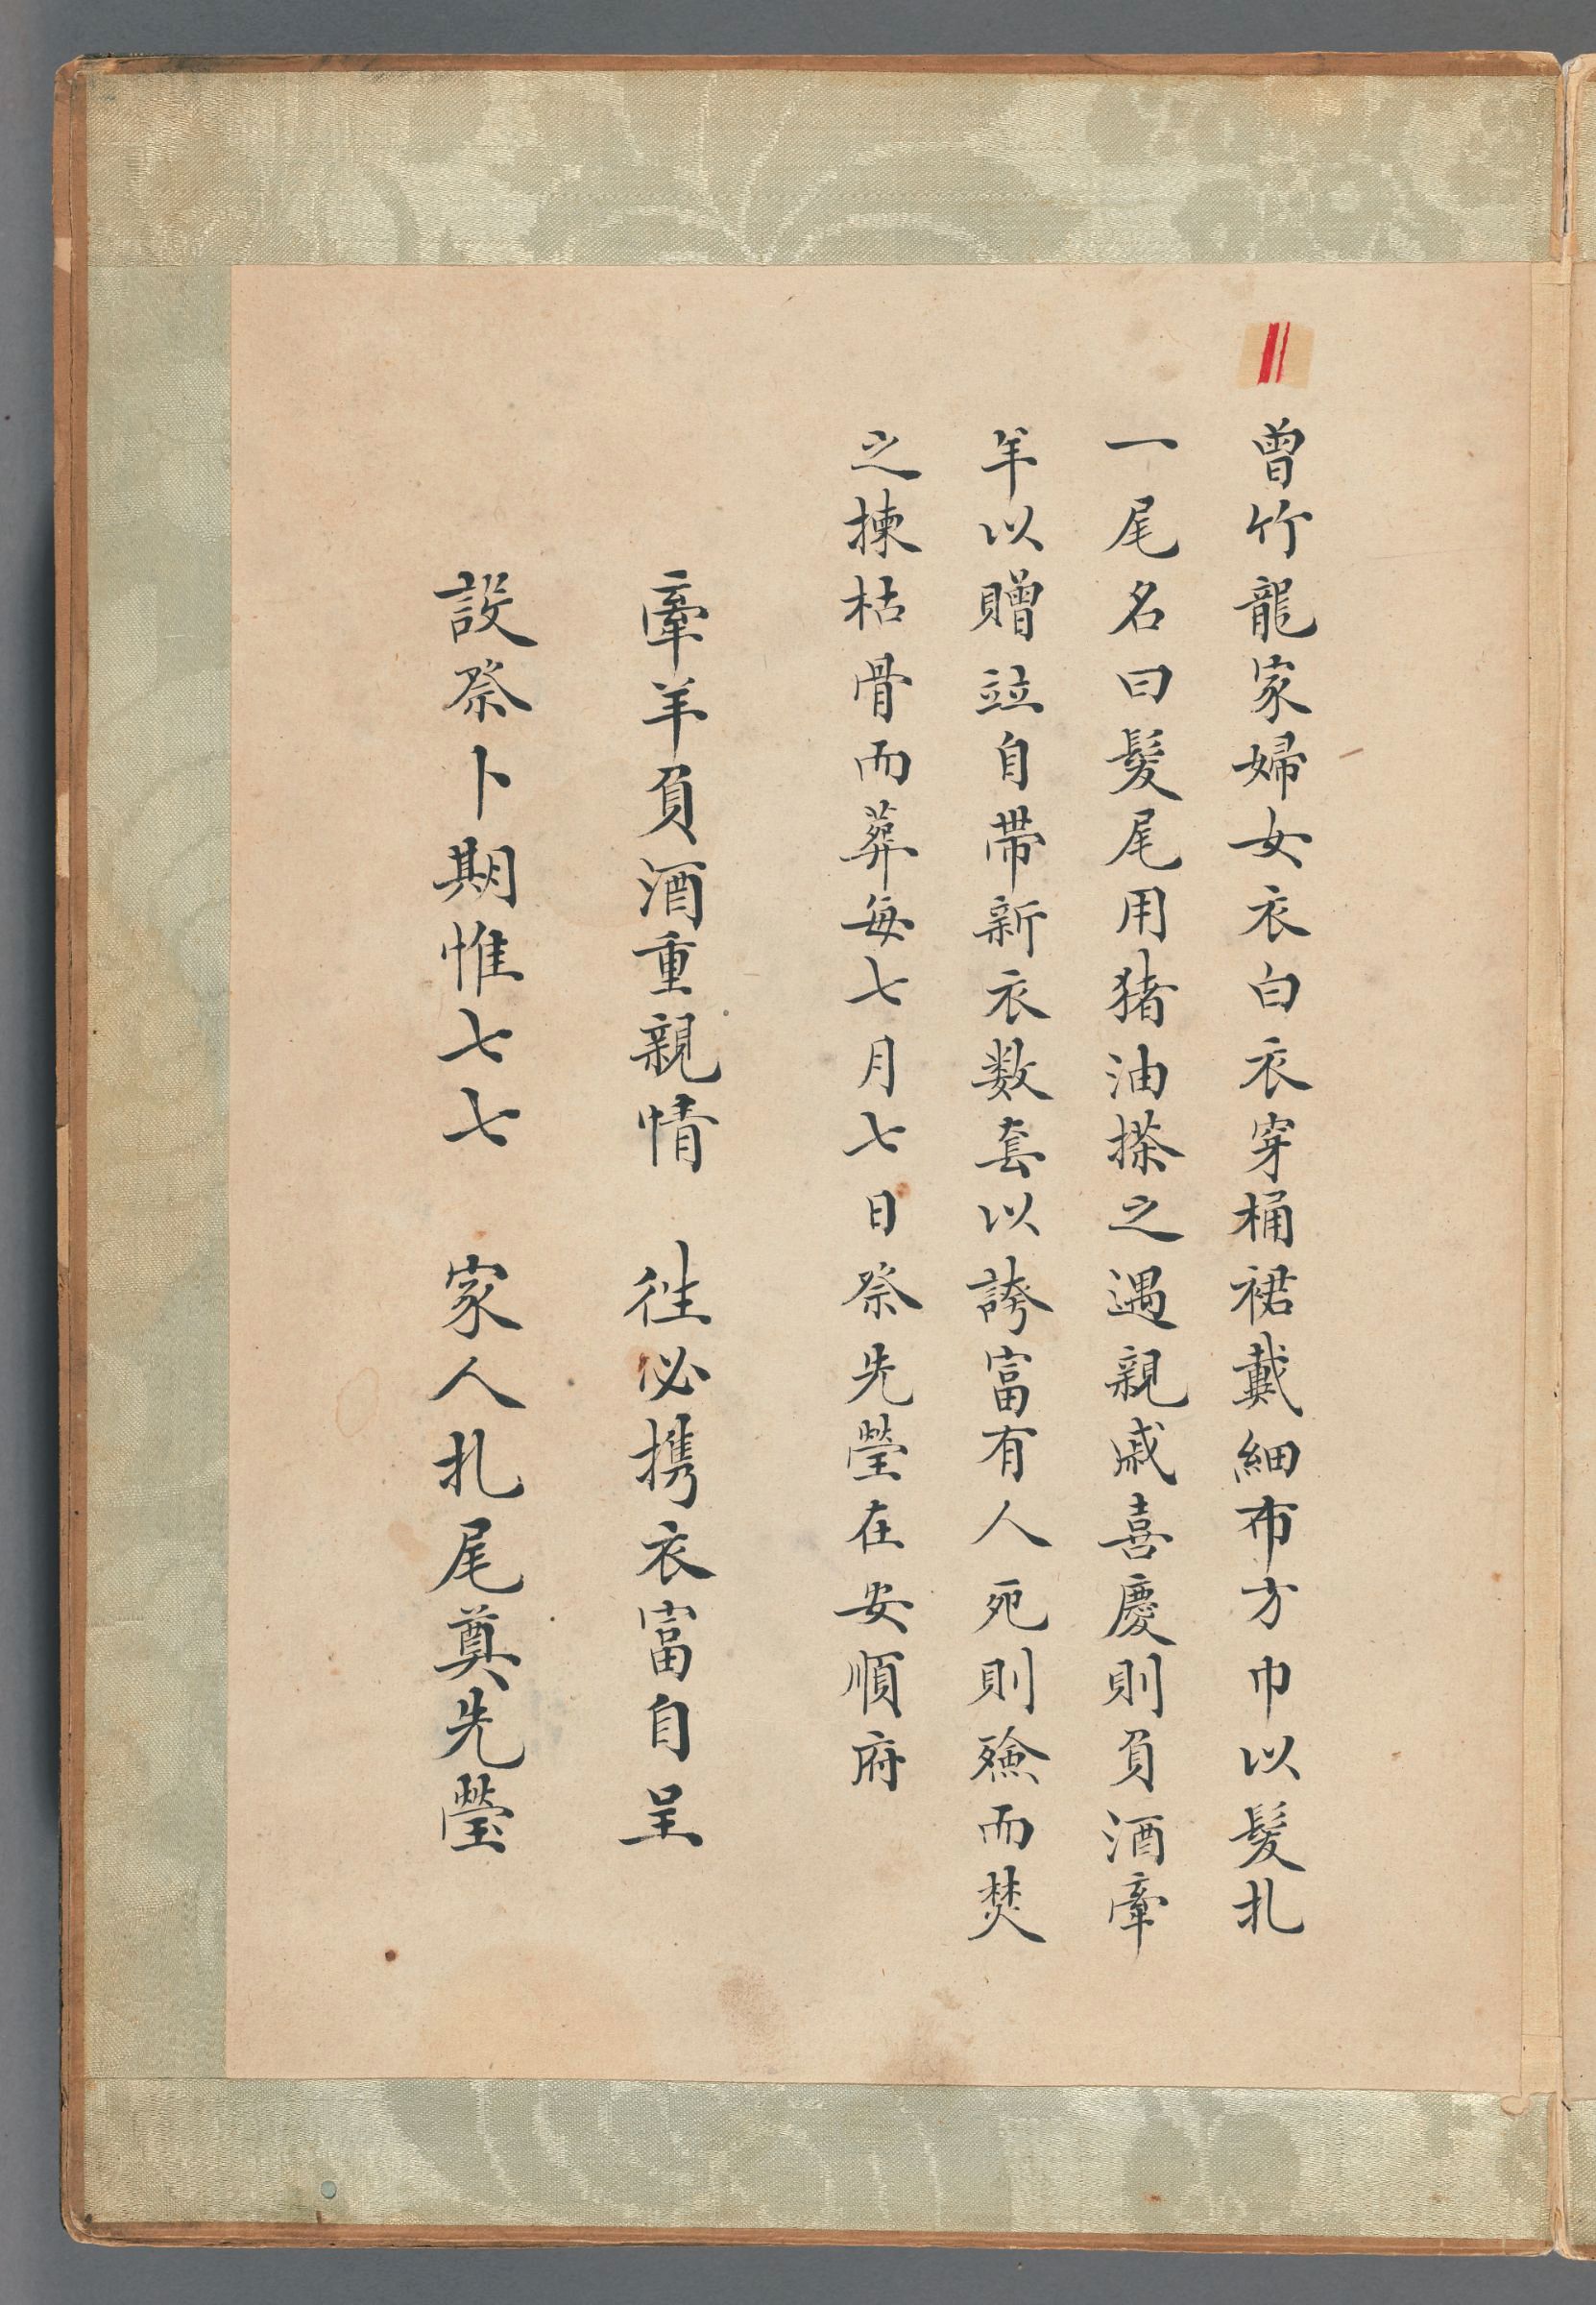 曾竹龍家婦女衣白衣穿桶裙戴細布方巾以髮扎
一尾名曰髮尾用猪油搽之遇親戚喜慶則負酒牽
羊以贈竝自帶新衣数套以誇富有人死則殮而焚
之揀枯骨而葬每七月七日祭先塋在安順府
牽羊負酒重親情 往必携衣富自呈
設祭卜期惟七七 家人扎尾奠先塋